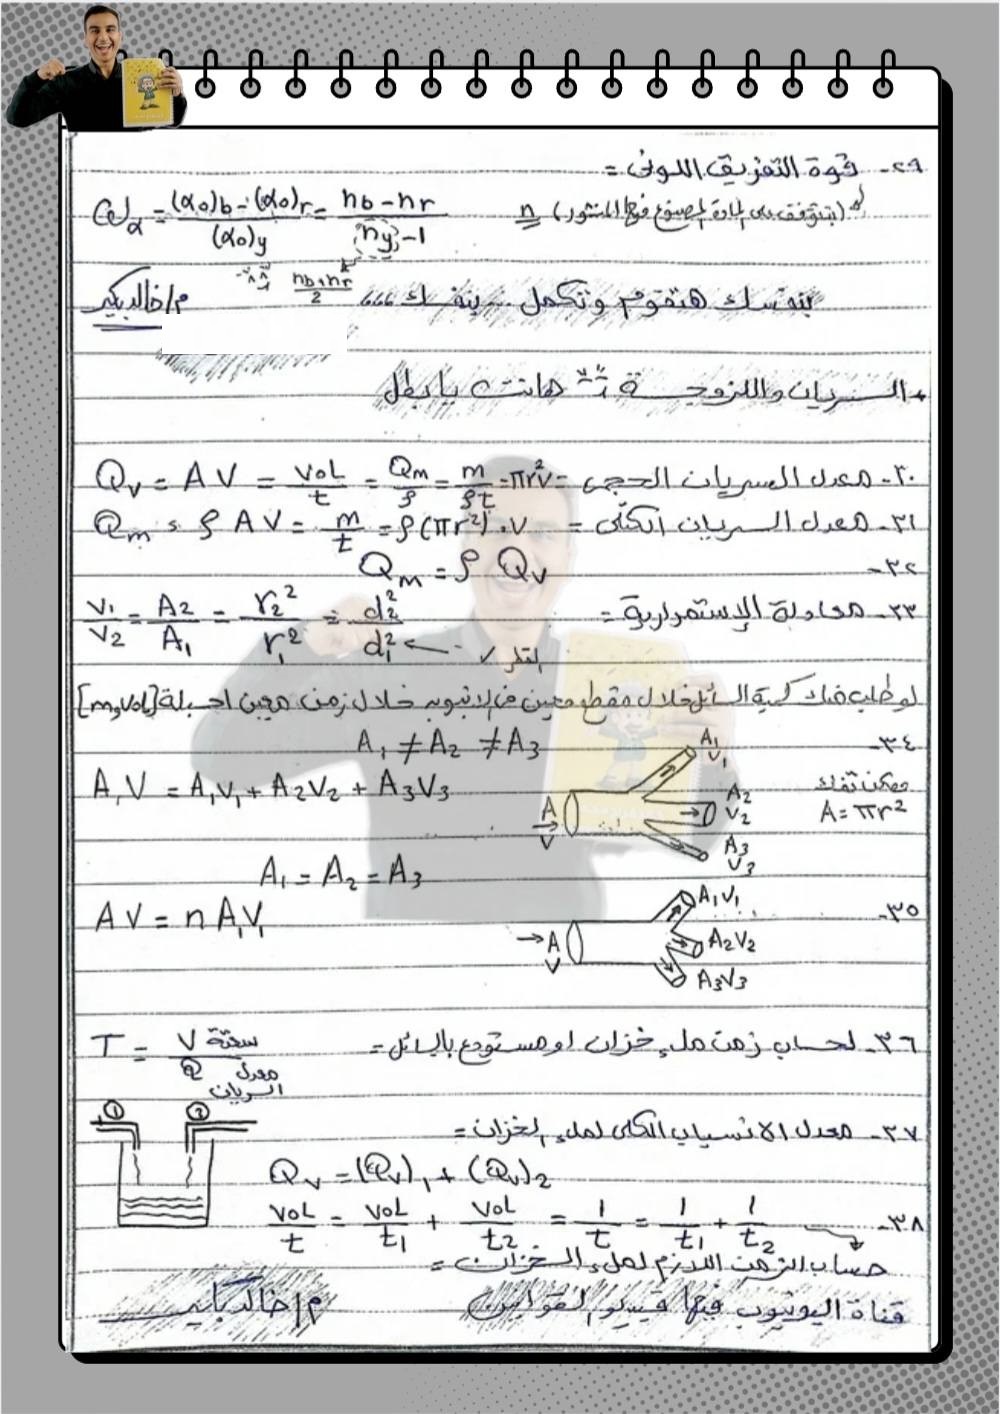 ٢٩- قوة التفريق اللونى =
ωα = (α₀)b - (α₀)r / (α₀)y = nb - nr / ny - 1
(بتتوقف على المادة المصنوع منها المنشور) n
nb + nr / 2
بنفسك هتقوم وتكمل ... بنفسك ،،،،
م/خالد بكير
* السريان واللزوجة هانت يا بطل
٣٠- معدل السريان الحجمى = Qv = A V = VoL / t = Qm / ρ = m / ρt = πr²v
٣١- معدل السريان الكتلى = Qm = ρ A V = m / t = ρ(πr²).v
٣٢- Qm = ρ Qv
٣٣- معادلة الإستمرارية = V₁ / V₂ = A₂ / A₁ = r₂² / r₁² = d₂² / d₁²
القطر ✓
لو طلب منك كمية السائل خلال مقطع معين من الانبوبه خلال زمن معين احسبله [m, VoL]
٣٤- A₁ ≠ A₂ ≠ A₃
A, V = A₁V₁ + A₂V₂ + A₃V₃
ممكن تفك
A = πr²
A
V
A₁
V₁
A₂
V₂
A₃
V₃
A₁ = A₂ = A₃
٣٥- A V = n A₁V₁
A
V
A₁V₁
A₂V₂
A₃V₃
٣٦- لحساب زمن ملء خزان او مستودع بالسائل =
T = V سعته / Q معدل السريان
٣٧- معدل الانسياب الكلى لملء الخزان =
① ②
Qv = (Qv)₁ + (Qv)₂
٣٨- VoL / t = VoL / t₁ + VoL / t₂ = 1 / t = 1 / t₁ + 1 / t₂
حساب الزمن اللازم لملء الخزان =
قناة اليوتيوب فيها فيديو القوانين
م/خالد بكير